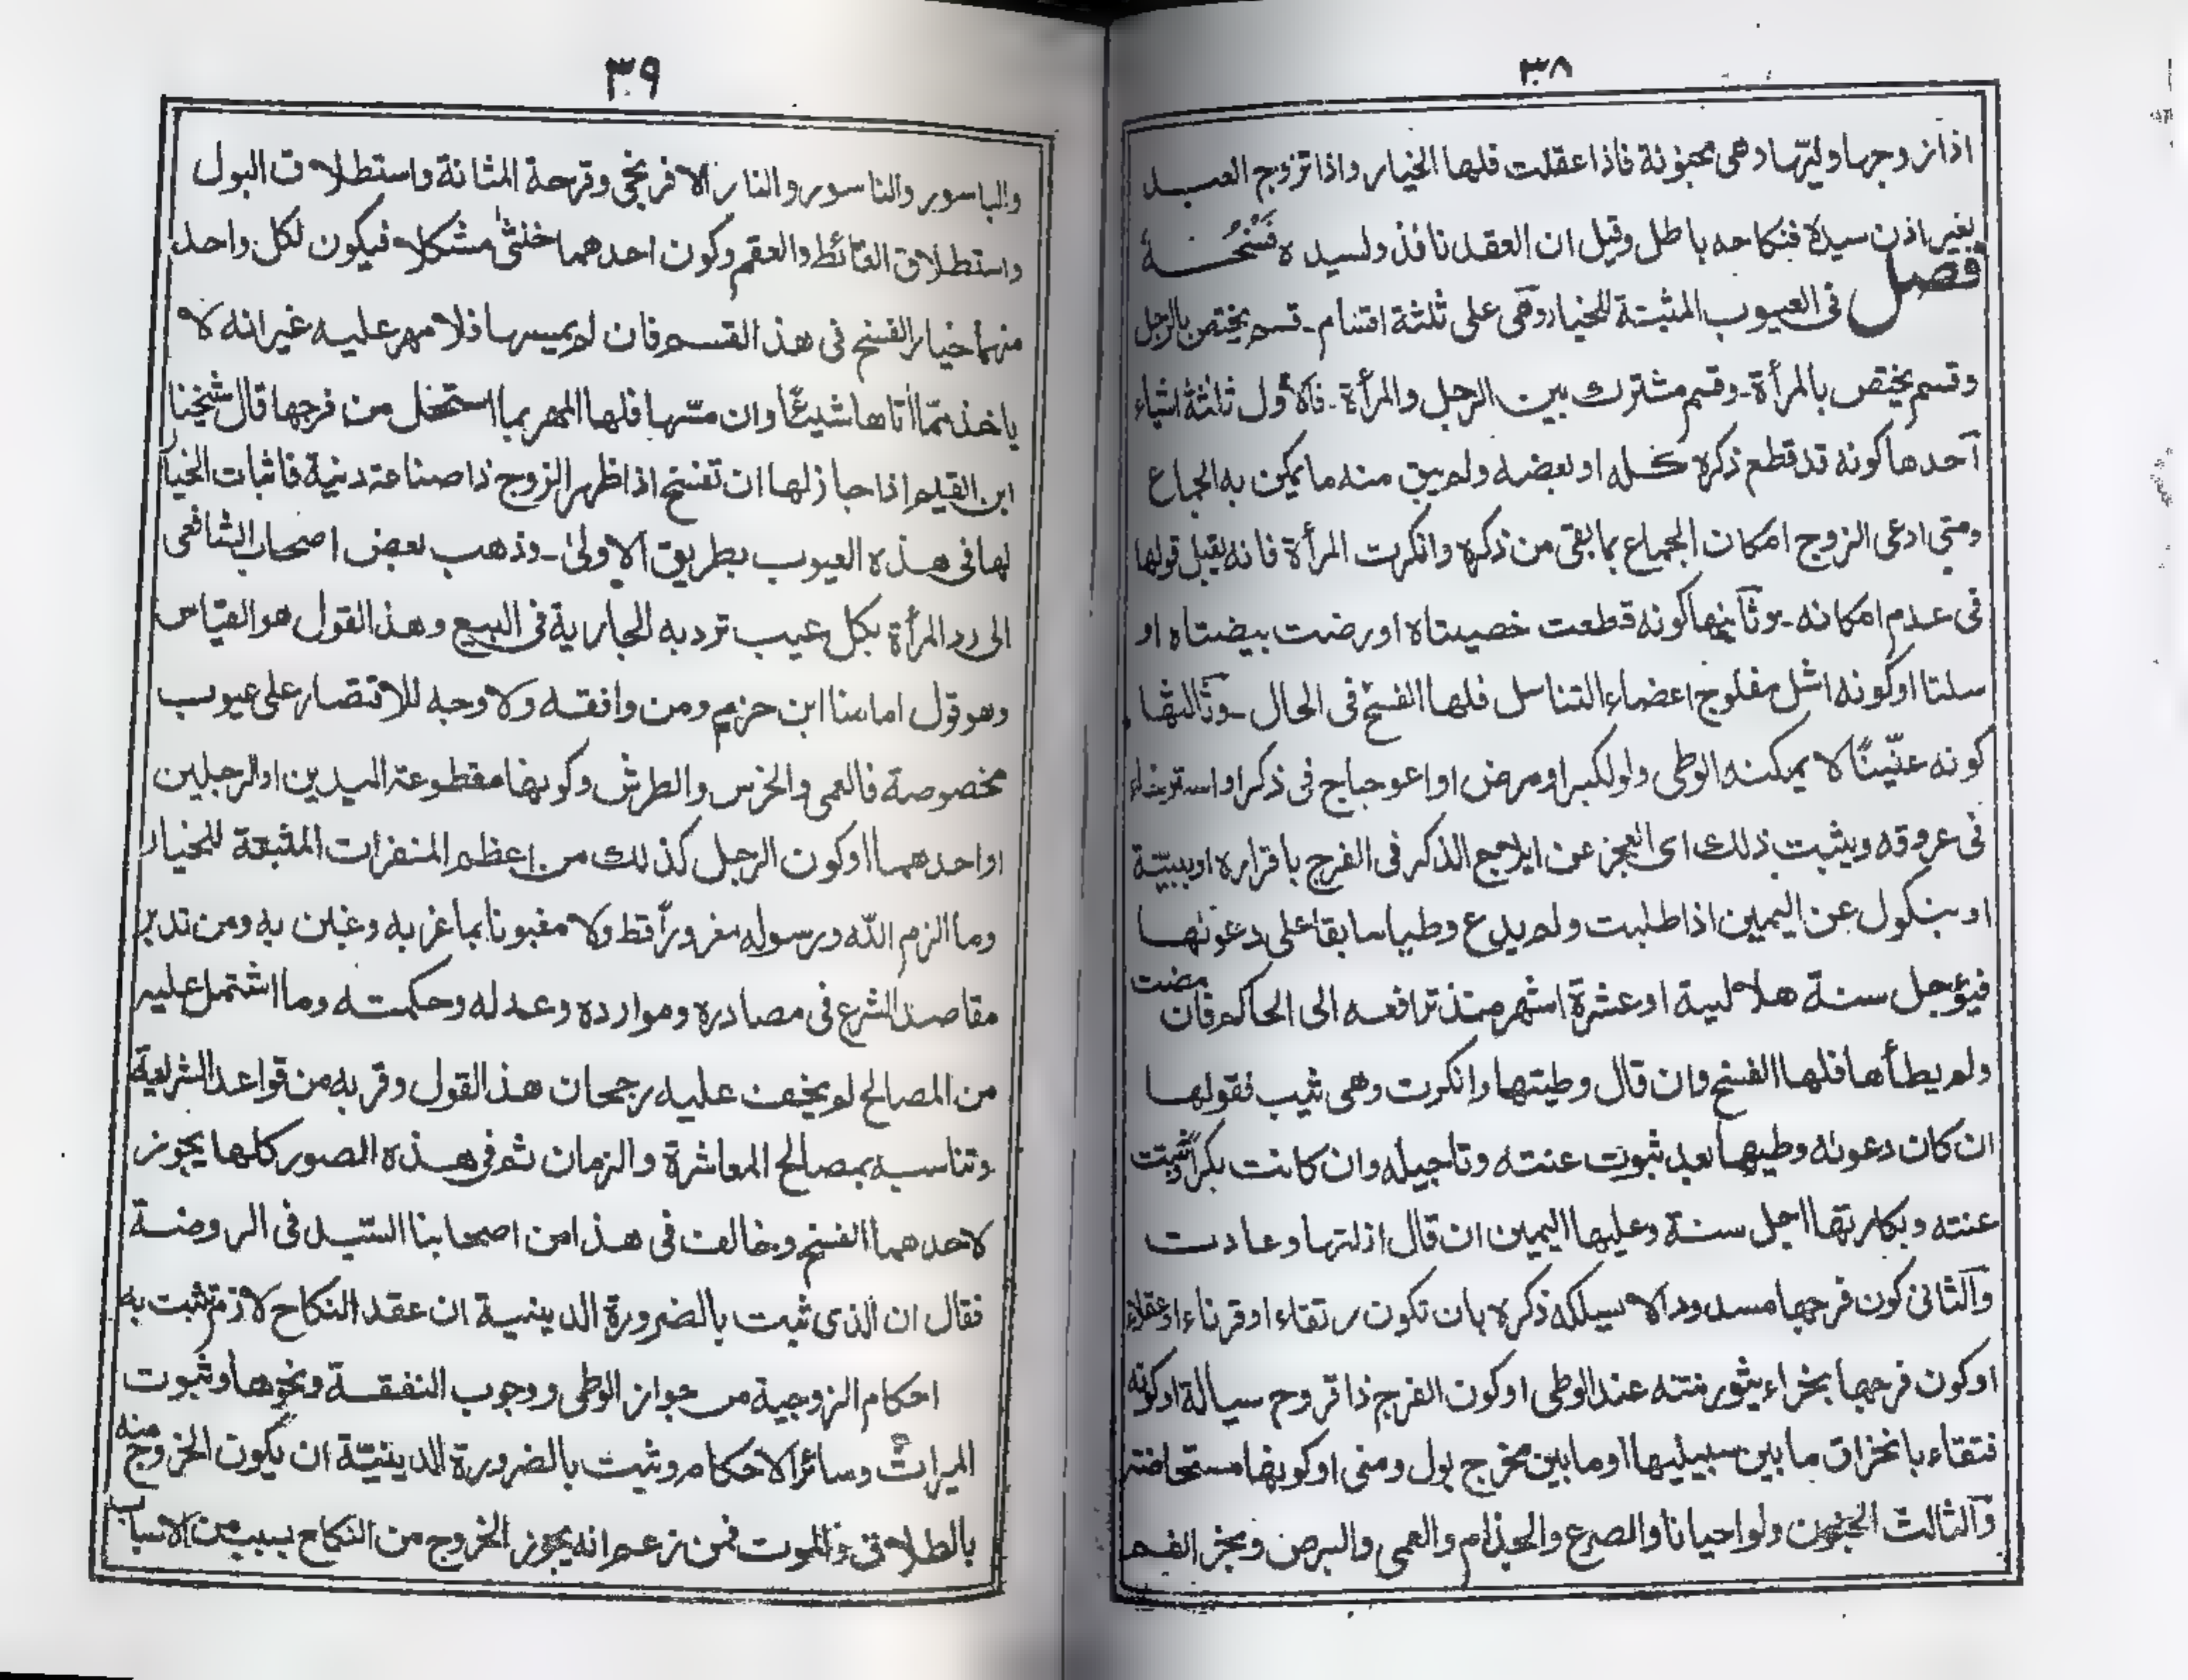 ٣٨
اذا زوجها وليّها وهى مجنونة فاذا عقلت فلها الخيار واذا تزوج العبد
بغير اذن سيده فنكاحه باطل وقيل ان العقد نافذ ولسيده فَسْخُهُ
فصل فى العيوب المثبتة للخيار وهى على ثلثة اقسام ـ قسم يختص بالرجل
وقسم يختص بالمرأة ـ وقسم مشترك بين الرجل والمرأة ـ فالاول ثلثة اشياء
آحدها كونه قد قطع ذكره كله او بعضه ولم يبق منه ما يمكن به الجماع
ومتى ادعى الزوج امكان الجماع بما بقى من ذكره وانكرت المرأة فانه يقبل قولها
فى عدم امكانه ـ وثآنيها كونه قطعت خصيتاه او رضت بيضتاه او
سلتا او كونه اشل مفلوج اعضاء التناسل فلها الفسخ فى الحال ـ وثآلثها
كونه عنّينًا لا يمكنه الوطى ولو لكبر او مرض او اعوجاج فى ذكر او استرخاء
فى عروقه ويثبت ذلك اى العجز عن ايلاج الذكر فى الفرج باقراره او ببيّنة
او بنكول عن اليمين اذا طلبت ولم يدع وطيا سابقا على دعوٰها
فيؤجل سنة هلالية او عشرة اشهر منذ ترافعه الى الحاكم فان مضت
ولم يطأها فلها الفسخ وان قال وطيتها وانكرت وهى ثيب فقولها
ان كان دعوٰه وطيها بعد ثبوت عنته وتاجيله وان كانت بكرا وثبت
عنته وبكارتها اجل سنة وعليها اليمين ان قال ازلتها وعادت
وآلثانى كون فرجها مسدودا لا يسلكه ذكره بان تكون رتقاء او قرناء او عفلاء
او كون فرجها بخراء يثور نتنه عند الوطى او كون الفرج ذا قروح سيالة او كونه
فتقاء بانخراق ما بين سبيليها او ما بين مخرج بول ومنى او كونها مستحاضة
وآلثالث الجنون ولو احيانا والصرع والجذام والعمى والبرص وبخر الفم
٣٩
والباسور والناسور والنار الافرنجى وقرحة المثانة واستطلاق البول
واستطلاق الغائط والعقم وكون احدهما خنثى مشكلا فيكون لكل واحد
منهما خيار الفسخ فى هذ القسم فان لم يمسها فلا مهر عليه غير انه لا
ياخذ ممّا اتاها شيئًا وان مسّها فلها المهر بما استحل من فرجها قال شيخنا
ابن القيم اذا جاز لها ان تفسخ اذا ظهر الزوج ذا صناعة دنية فاثبات الخيار
لها فى هذه العيوب بطريق الاولىٰ ـ وذهب بعض اصحاب الشافعى
الى رد المرأة بكل عيب ترد به الجارية فى البيع وهذ القول هو القياس
وهو قول امامنا ابن حزم ومن وافقه ولا وجه للاقتصار على عيوب
مخصوصة فالعمى والخرس والطرش وكونها مقطوعة اليدين او الرجلين
او احدهما او كون الرجل كذلك من اعظم المنفرات المثبتة للخيار
وما الزم الله ورسوله مغرورًا قط ولا مغبونا بما غر به وغبن به ومن تدبر
مقاصد الشرع فى مصادره وموارده وعدله وحكمته وما اشتمل عليه
من المصالح لم يخف عليه رجحان هذ القول وقربه من قواعد الشريعة
وتناسبه بمصالح المعاشرة والزمان ثم فى هذه الصور كلها يجوز
لاحدهما الفسخ وخالف فى هذا من اصحابنا السّيد فى الروضة
فقال ان الذى ثبت بالضرورة الدينية ان عقد النكاح لازم تثبت به
احكام الزوجية من جواز الوطى ووجوب النفقة ونحوها وثبوت
الميراث وسائر الاحكام وثبت بالضرورة الدينيّة ان يكون الخروج منه
بالطلاق والموت فمن زعم انه يجوز الخروج من النكاح بسبب من الاسباب